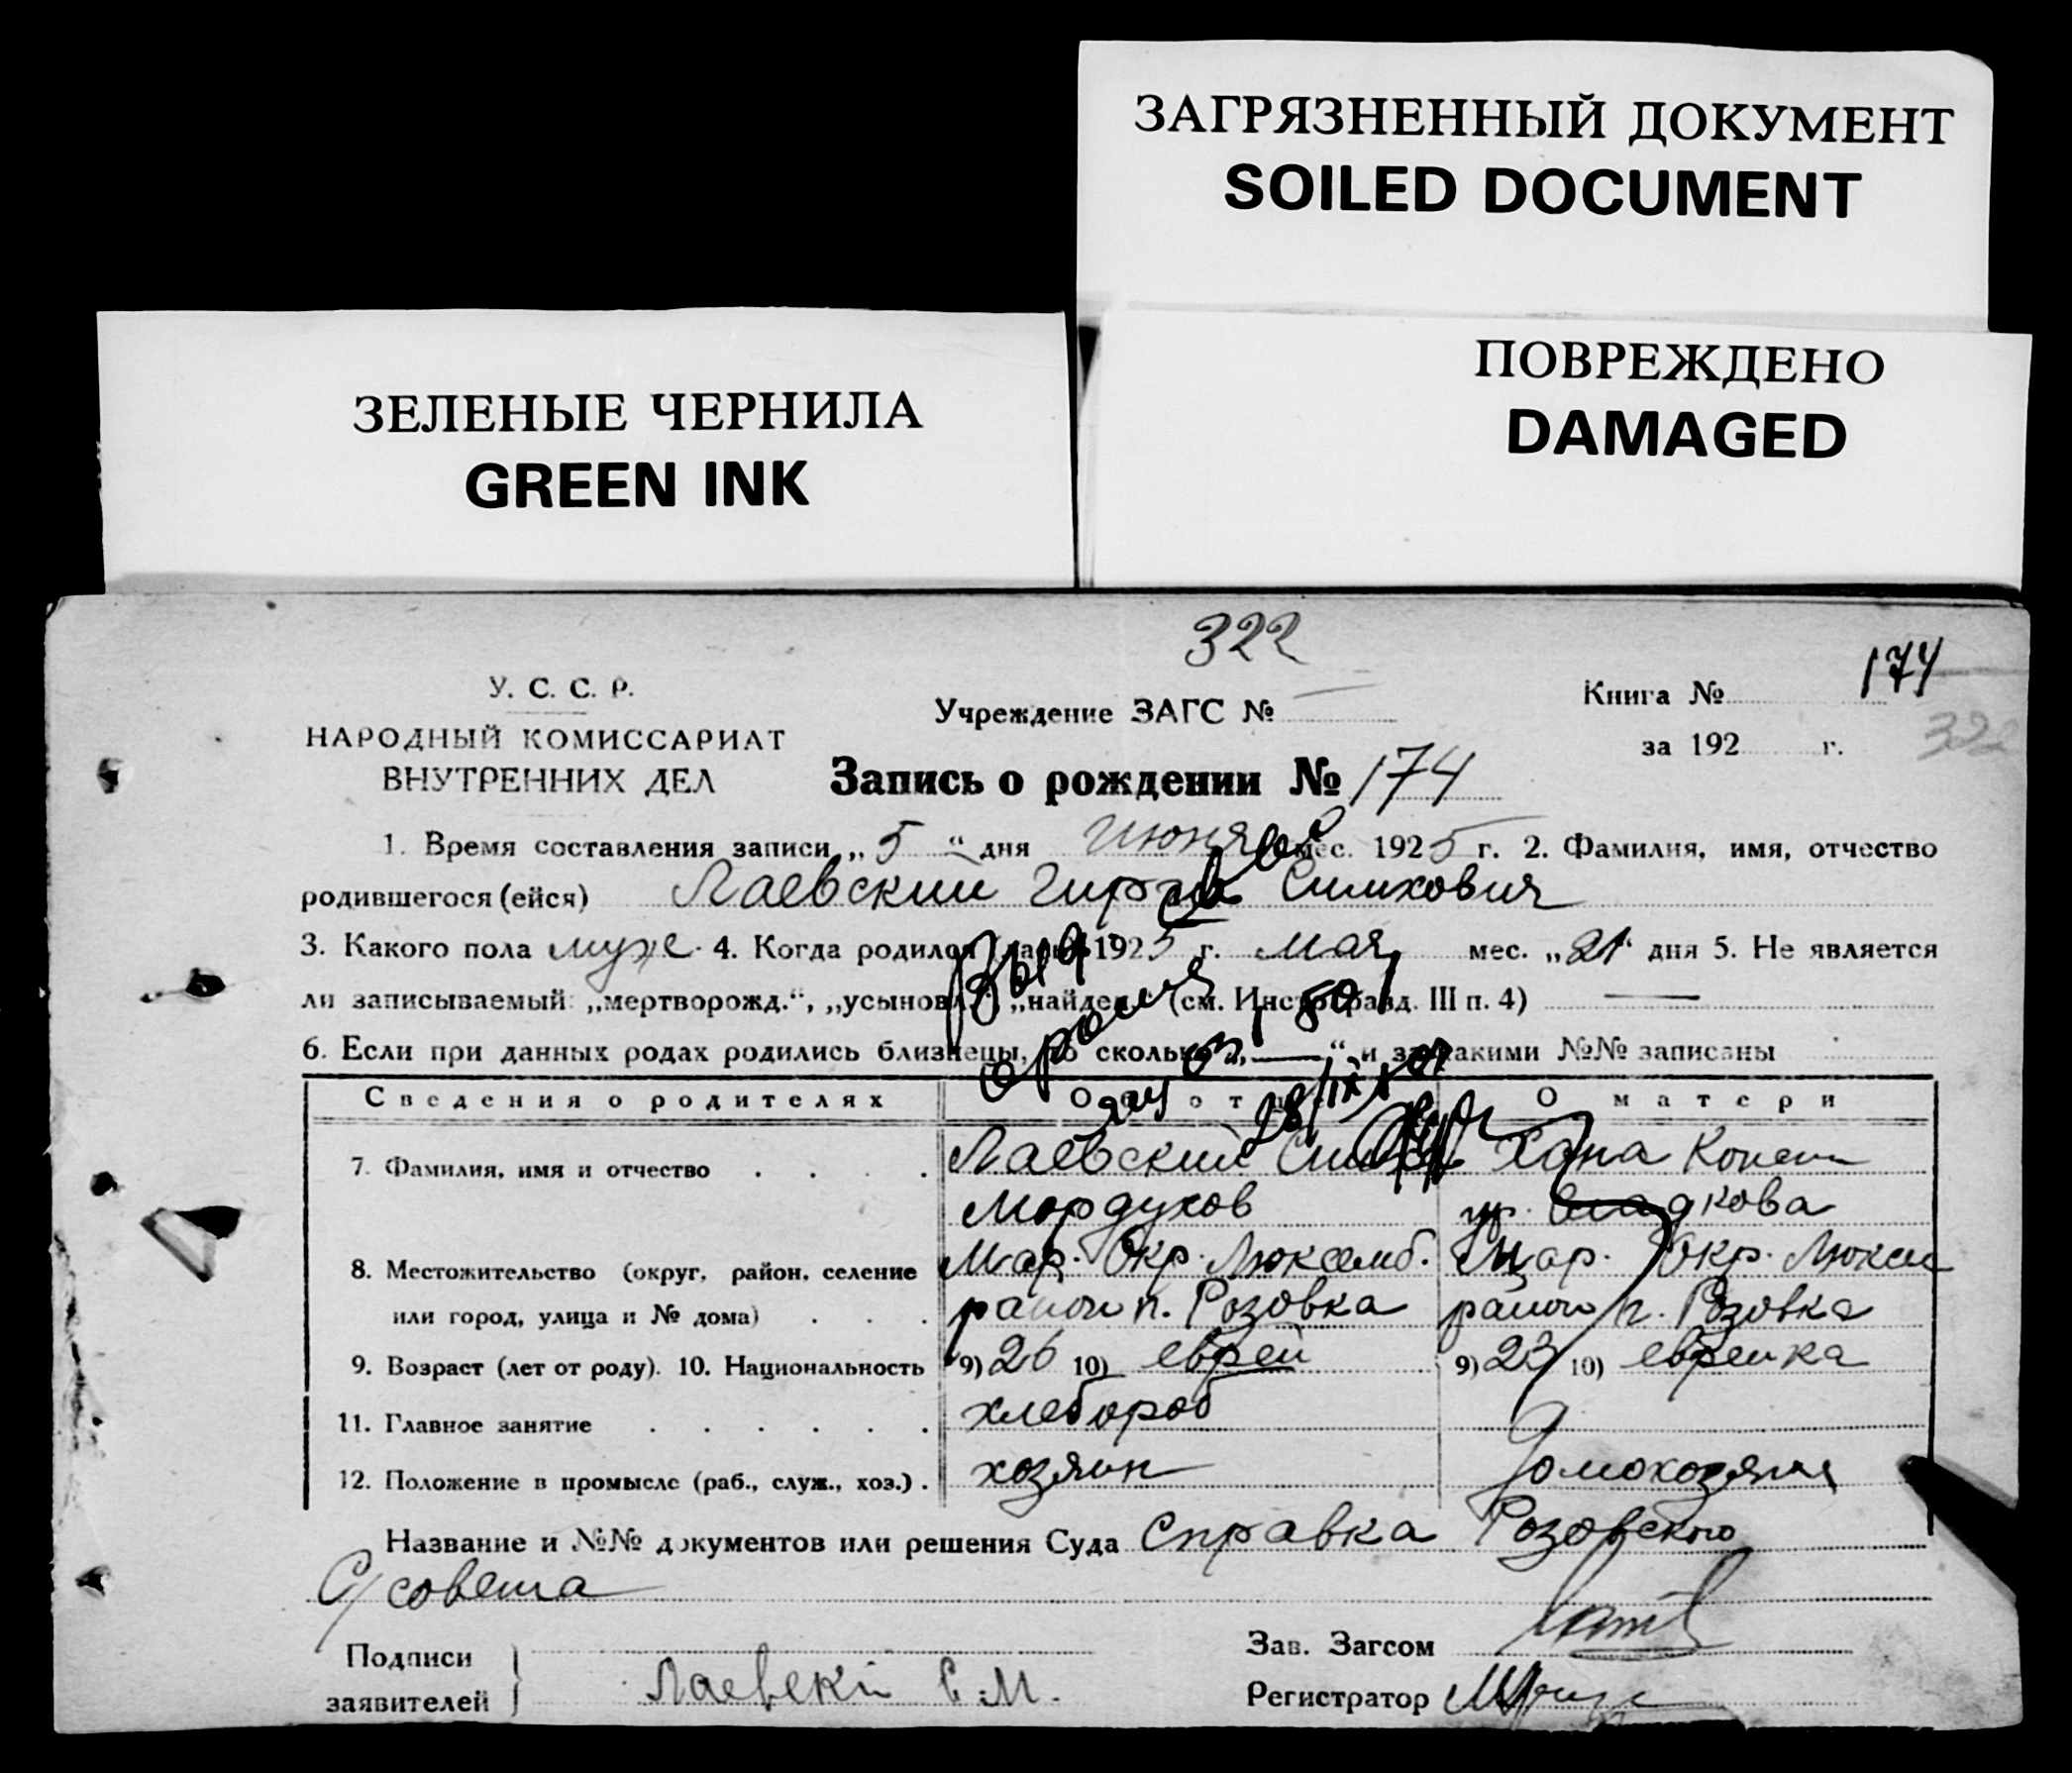 ЗАГРЯЗНЕННЫЙ ДОКУМЕНТ
SOILED DOCUMENT
ЗЕЛЕНЫЕ ЧЕРНИЛА
GREEN INK
ПОВРЕЖДЕНО
DAMAGED
322
174
322
У. С. С. Р.
НАРОДНЫЙ КОМИССАРИАТ
ВНУТРЕННИХ ДЕЛ
Учреждение ЗАГС №
Книга №
за 192 г.
Запись о рождении № 174
1. Время составления записи „ 5 “ дня июня мес. 1925 г. 2. Фамилия, имя, отчество
родившегося (ейся) Лаевский Симхович
3. Какого пола муж. 4. Когда родился 1925 г. мая мес. „21“ дня 5. Не является
ли записываемый: „мертворожд.“, „усыновл.“, „найден.“ (см. Инстр. разд. III п. 4) —
6. Если при данных родах родились близнецы, то сколько „—“ и за какими №№ записаны
Сведения о родителях
О матери
7. Фамилия, имя и отчество
Лаевский
Мордухов
Хана
8. Местожительство (округ, район, селение
или город, улица и № дома)
Мар. Окр. Люксемб.
район п. Розовка
Мар. Окр. Люксем
район п. Розовка
9. Возраст (лет от роду). 10. Национальность 9) 26 10) еврей 9) 23 10) еврейка
11. Главное занятие хлебороб
12. Положение в промысле (раб., служ., хоз.) . хозяин домохозяйка
Название и №№ документов или решения Суда Справка Розовского
С/совета
Подписи
заявителей
Лаевскі С. М.
Зав. Загсом
Регистратор